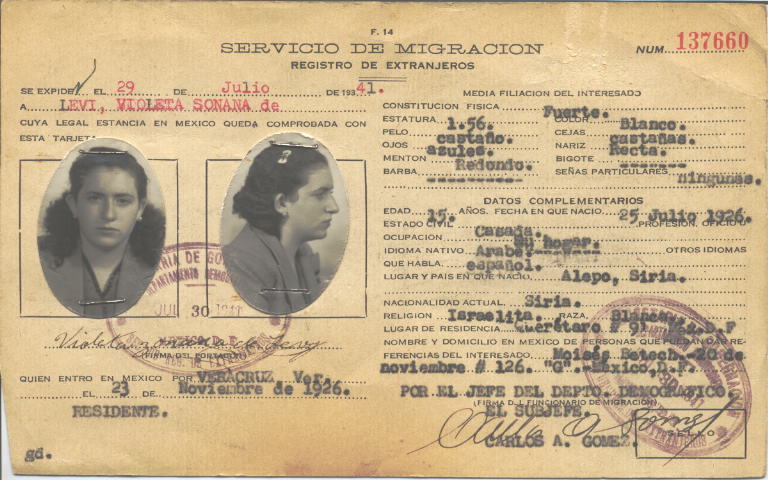 F. 14
SERVICIO DE MIGRACION
REGISTRO DE EXTRANJEROS
NUM. 137660
SE EXPIDE EL 29 DE Julio DE 1941.
A LEVI, VIOLETA SONANA de
CUYA LEGAL ESTANCIA EN MEXICO QUEDA COMPROBADA CON
ESTA TARJETA
MEDIA FILIACION DEL INTERESADO
CONSTITUCION FISICA Fuerte.
ESTATURA 1.56. COLOR Blanco.
PELO castaño. CEJAS castañas.
OJOS azules. NARIZ Recta.
MENTON Redondo. BIGOTE -------
BARBA --------- SEÑAS PARTICULARES ningunas.
DATOS COMPLEMENTARIOS
EDAD 15. AÑOS. FECHA EN QUE NACIO. 25 Julio 1926.
ESTADO CIVIL Casada. PROFESION, OFICIO U
OCUPACION Su hogar.
IDIOMA NATIVO Arabe. OTROS IDIOMAS
QUE HABLA. español.
LUGAR Y PAIS EN QUE NACIO. Alepo, Siria.
NACIONALIDAD ACTUAL. Siria.
RELIGION Israelita. RAZA. Blanca.
LUGAR DE RESIDENCIA Querétaro # 91 D.F
NOMBRE Y DOMICILIO EN MEXICO DE PERSONAS QUE PUEDAN DAR RE-
FERENCIAS DEL INTERESADO. Moisés Betech.-20 de
noviembre # 126. "G".-México, D.F.
Violeta de Levy
(FIRMA DEL PORTADOR)
QUIEN ENTRO EN MEXICO POR VERACRUZ, Ver.
EL 23 DE Noviembre de 1926.
RESIDENTE.
POR EL JEFE DEL DEPTO. DEMOGRAFICO.
(FIRMA DEL FUNCIONARIO DE MIGRACION)
EL SUBJEFE.
CARLOS A. GOMEZ.
SELLO
gd.
DEPARTAMENTO
JUL 30 1941